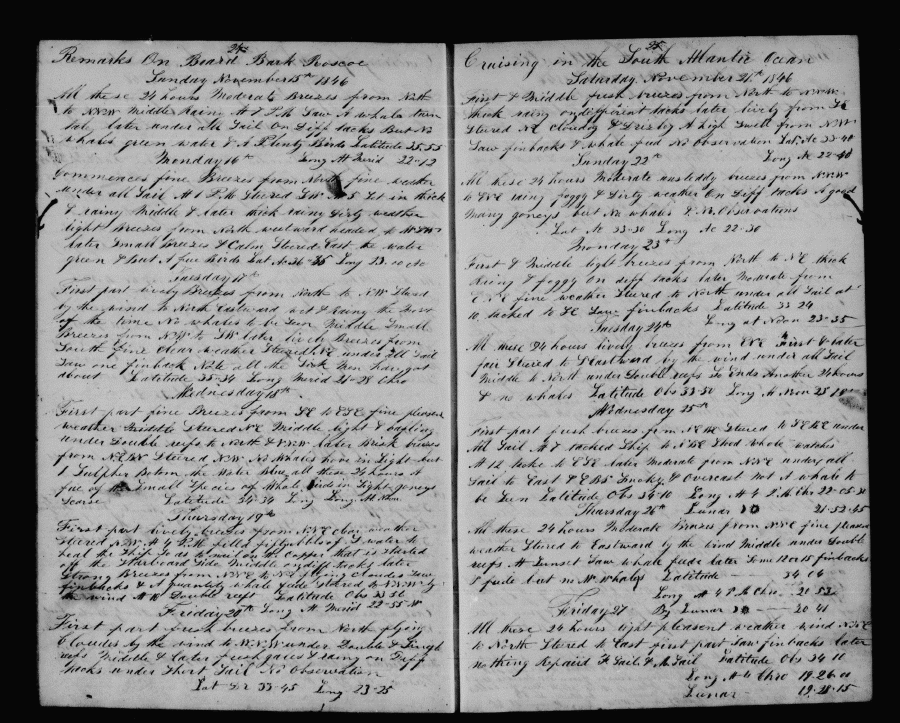 24
Remarks On Board Bark Roscoe
Sunday November 15th 1846
All these 24 hours Moderate Breezes from North
to NNW Middle Rain At 1 P.M. Saw A whale turn
tale later under all Sail On Diff tacks But No
whales green water & A Plenty Birds Latitude 35-55
Monday 16th Long At Merid 22-12
Commences fine Breezes from North fine weather
under all Sail At 1 P.M. Steered SW At 5 Set in thick
& rainy Middle & later thick rainy Dirty weather
light Breezes from North westward headed to
later Small Breezes & Calm Steered East the water
green & But A few birds Lat 36-25 Long 23-00
Tuesday 17th
First part lively Breezes from North to NW Steered
by the wind to North Eastward wet & rainy the Most
of the time No whales to be Seen Middle Small
Breezes from NW to SW later lively Breezes from
South fine Clear weather Steered NE under All Sail
Saw one finback Note all the Sick Men have got
about Latitude 35-34 Long Merid 21-28 Chro
Wednesday 18th
First part fine Breezes from SE to ESE fine pleasant
weather Middle Steered NE Middle light & bafling
under Double reefs to North & NNW later Brisk breezes
from NEBN Steered NW No Whales hove in Sight but
1 Sulpher Botom the Water Blue all these 24 hours A
few of the Small Species of Whale birds in Sight goneys
Scarse Latitude 34-34 Long
Thursday 19th
First part lively breezes from NNE clear weather
Steered NW At 4 P.M. filled of water to
heal the Ship So as to nail on the Copper that is Started
off the Starboard Side Middle on diff tacks later
Strong Breezes from NNE to NE flying Clouds Saw
finbacks & A quantity whale fude Steered to by
the wind At M Double reefs Latitude Obs 33-56
Friday 20th Long At Merid 22-55 W
First part fresh breezes from North flying
Cloudes by the wind to WNW under Double & Single
reefs Middle & Later fresh gales & rainy on Diff
tacks under Short Sail No Observation
Lat DR 33-45 Long 23-25
25
Cruising in the South Atlantic Ocean
Saturday November 21st 1846
First & Middle fresh breezes from North to NNW
thick rainy on different tacks later lively from
Steered NE cloudey & Drizly A high Swell from NW
Saw finbacks & whale fud No observation Lat Ac 33-40
Sunday 22nd Long Ac 22-40
All these 24 hours Moderate unsteddy breezes from NNW
to ENE rainy foggy & Dirty weather On Diff tacks A good
many goneys but No whales & No Observations
Lat Ac 33-30 Long Ac 22-30
Monday 23d
First & Middle light breezes from North to NE thick
Rainy & foggy on diff tacks later Moderate from
ENE fine weather Steered to North under all Sail at
10 tacked to SE Saw finbacks Latitude 33 24
Tuesday 24th Long at Noon 23-35
All these 24 hours lively breezes from ENE First & later
fair Steered to Eastward by the wind under all Sail
Middle to North under Double reefs So Ends Another 24 hours
& no whales Latitude Obs 33-50 Long At Noon 23
Wednesday 25th
First part fresh breezes from NEBE Steered to SEBE under
All Sail At 7 tacked Ship to NBE Stood whole watches
At 12 tacke to ESE later Moderate from NNE under all
Sail to East & EBS Smoky & Overcast Not A whale to
be Seen Latitude Obs 34-10 Long At 4 P.M. Chr 22-05-30
Thursday 26th Lunar 21-52-45
All these 24 hours Moderate Breezes from NNE fine pleasant
weather Steered to Eastward by the wind Middle under Double
reefs At Sunset Saw whale fude later Some 12 or 15 finbacks
& fude but no whales Latitude 34 04
Long At 4 P.M. Chro 20 52
Friday 27 By Lunar 20 41
All these 24 hours light pleasent weather wind NNE
to North Steered to East first part Saw finbacks later
nothing Repaird F Sail & M Sail Latitude Obs 34 11
Long At 4 Chro 19-26-00
Lunar 19-28-15